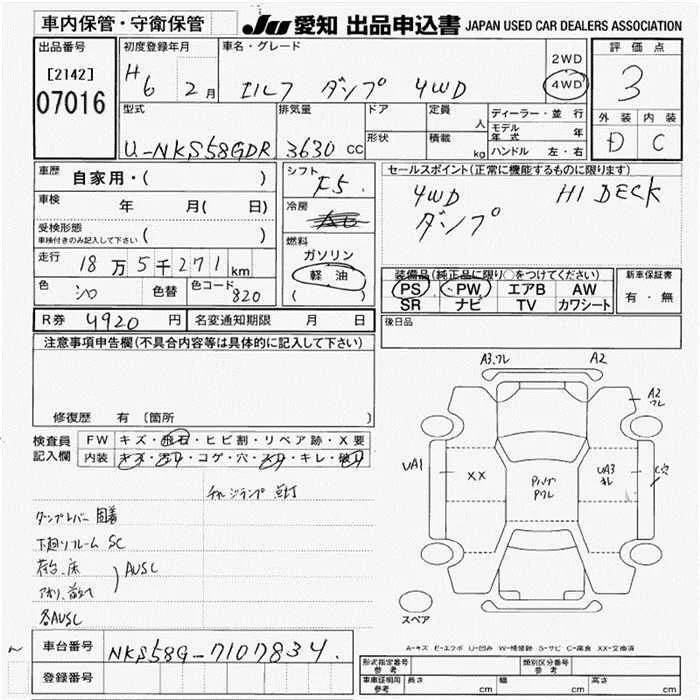 車内保管・守衛保管
JU 愛知 出品申込書 JAPAN USED CAR DEALERS ASSOCIATION
出品番号
[2142]
07016
初度登録年月
H6 2月
車名・グレード
エルフ ダンプ 4WD
2WD
4WD
評価点
3
外装 内装
D C
型式
U-NKS58GDR
排気量
3630 CC
ドア
形状
定員
人
積載
kg
ディーラー・並行
モデル年式 年
ハンドル 左・右
車歴 自家用・( )
車検 年 月( 日)
受検形態
車検付きのみ記入して下さい ( )
走行 18万5千271km
色 シロ 色替 色コード 820
シフト
F5.
冷房
AC
燃料
ガソリン
軽油
( )
セールスポイント(正常に機能するものに限ります)
4WD HI DECK
ダンプ
装備品(純正品に限り○をつけてください)
PS PW エアB AW
SR ナビ TV カワシート
新車保証書
有・無
R券 4920円 名変通知期限 月 日
後日品
注意事項申告欄(不具合内容等は具体的に記入して下さい)
修復歴 有 〔箇所 〕
検査員記入欄
FW キズ・飛石・ヒビ割・リペア跡・X要
内装 キズ・汚れ・コゲ・穴・スレ・キレ・破れ
ダンプレバー固着
下廻りフレーム SC
荷台、床
AUSC
各AUSC
A3.ワレ
A2
A2
ワレ
UA1
XX
UA3
C穴
スペア
A-キズ E-エクボ U-凹み W-補修跡 S-サビ C-腐食 XX-交換済
車台番号 NKS58G-7107834.
登録番号
形式指定番号
参考
類別区分番号
参考
車庫証明用
参考
長さ cm 幅 cm 高さ cm